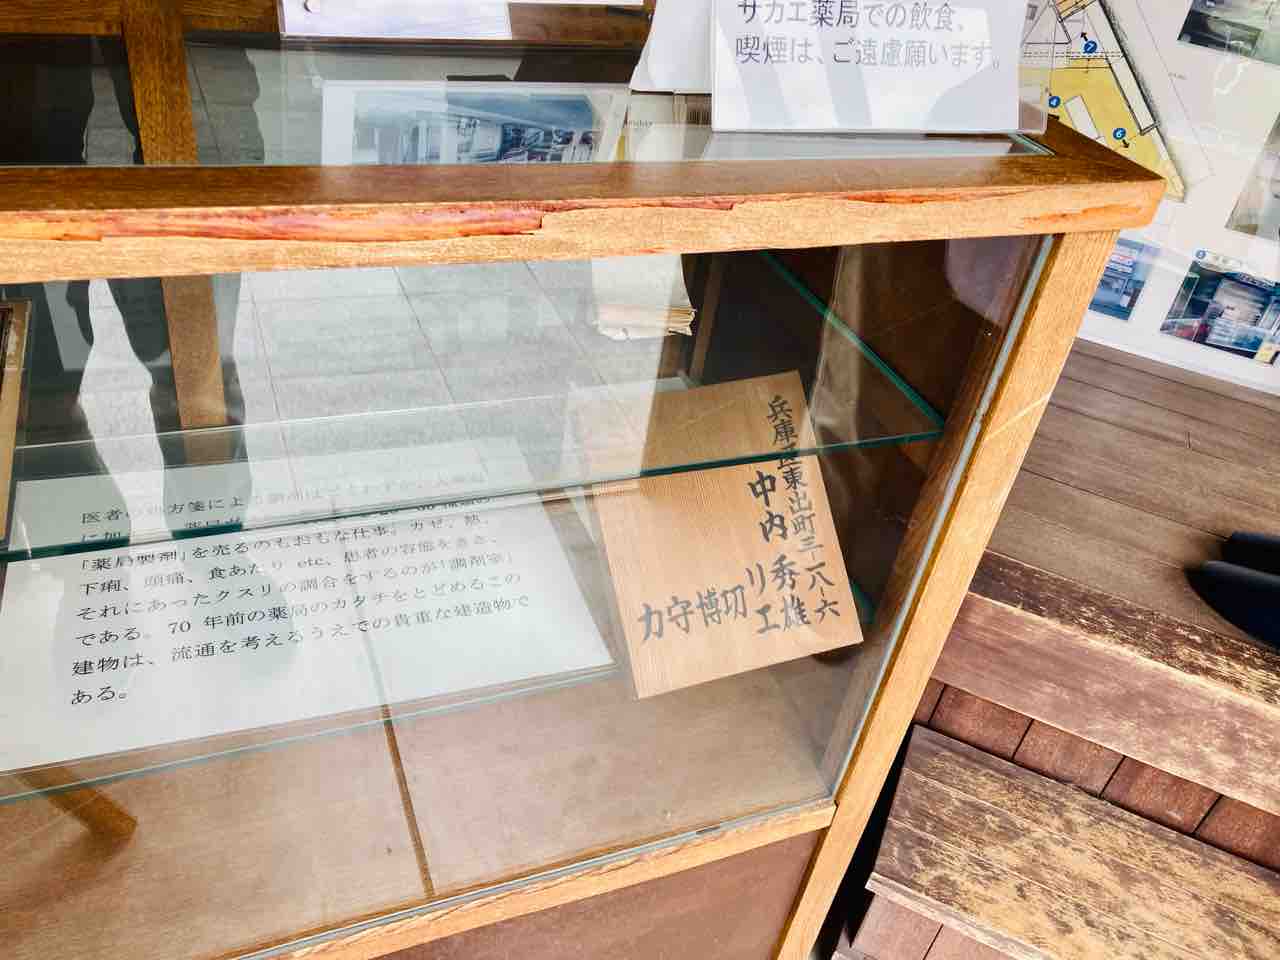 サカエ薬局での飲食、
喫煙は、ご遠慮願います。
兵庫区東出町三-一八-六
中内 秀雄
リエ
切
博
守
力
「薬局製剤」を売るのもおもな仕事。カゼ、熱、
下痢、頭痛、食あたり etc、患者の容態をきき、
それにあったクスリの調合をするのが「調剤室」
である。70 年前の薬局のカタチをとどめるこの
建物は、流通を考えるうえでの貴重な建造物で
ある。
7
4
6